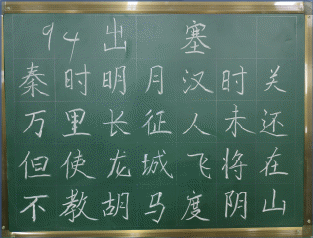 94 出 塞
秦时明月汉时关
万里长征人未还
但使龙城飞将在
不教胡马度阴山